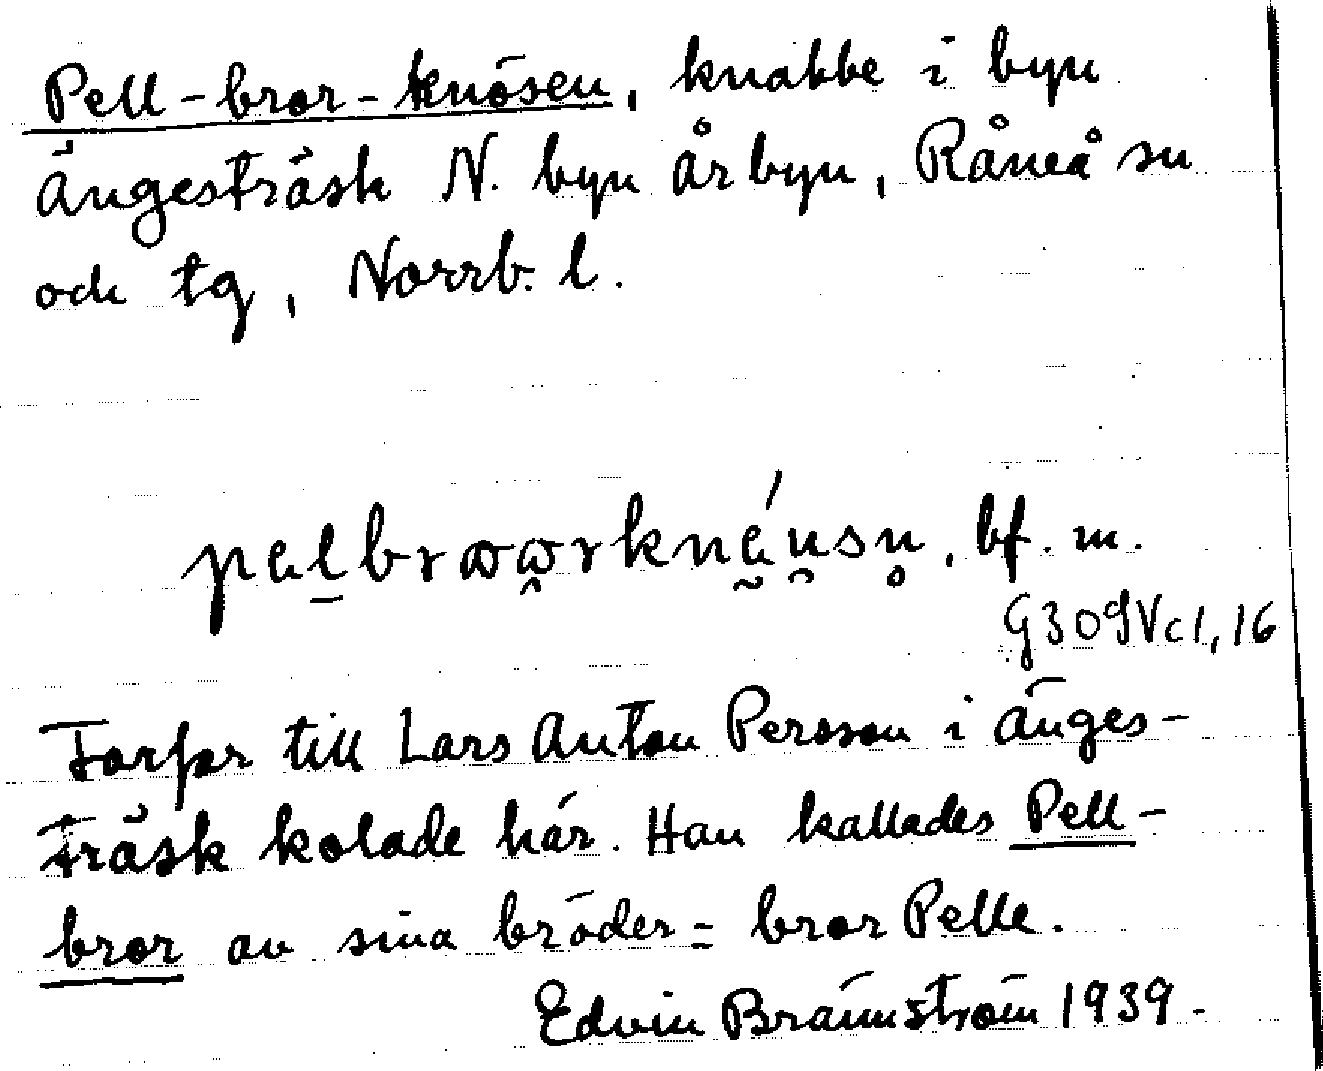 Pell-bror-knösen, knabbe i byn
Ängesträsk N. byn Årbyn, Råneå sn
och tg, Norrb. l.
pal̠brωω̭rknạ̰́u̯sn̥, bf. m.
G309Vc1,16
Farfar till Lars Anton Persson i Änges-
träsk kolade här. Han kallades Pell-
bror av sina bröder = bror Pelle.
Edvin Brännström 1939.